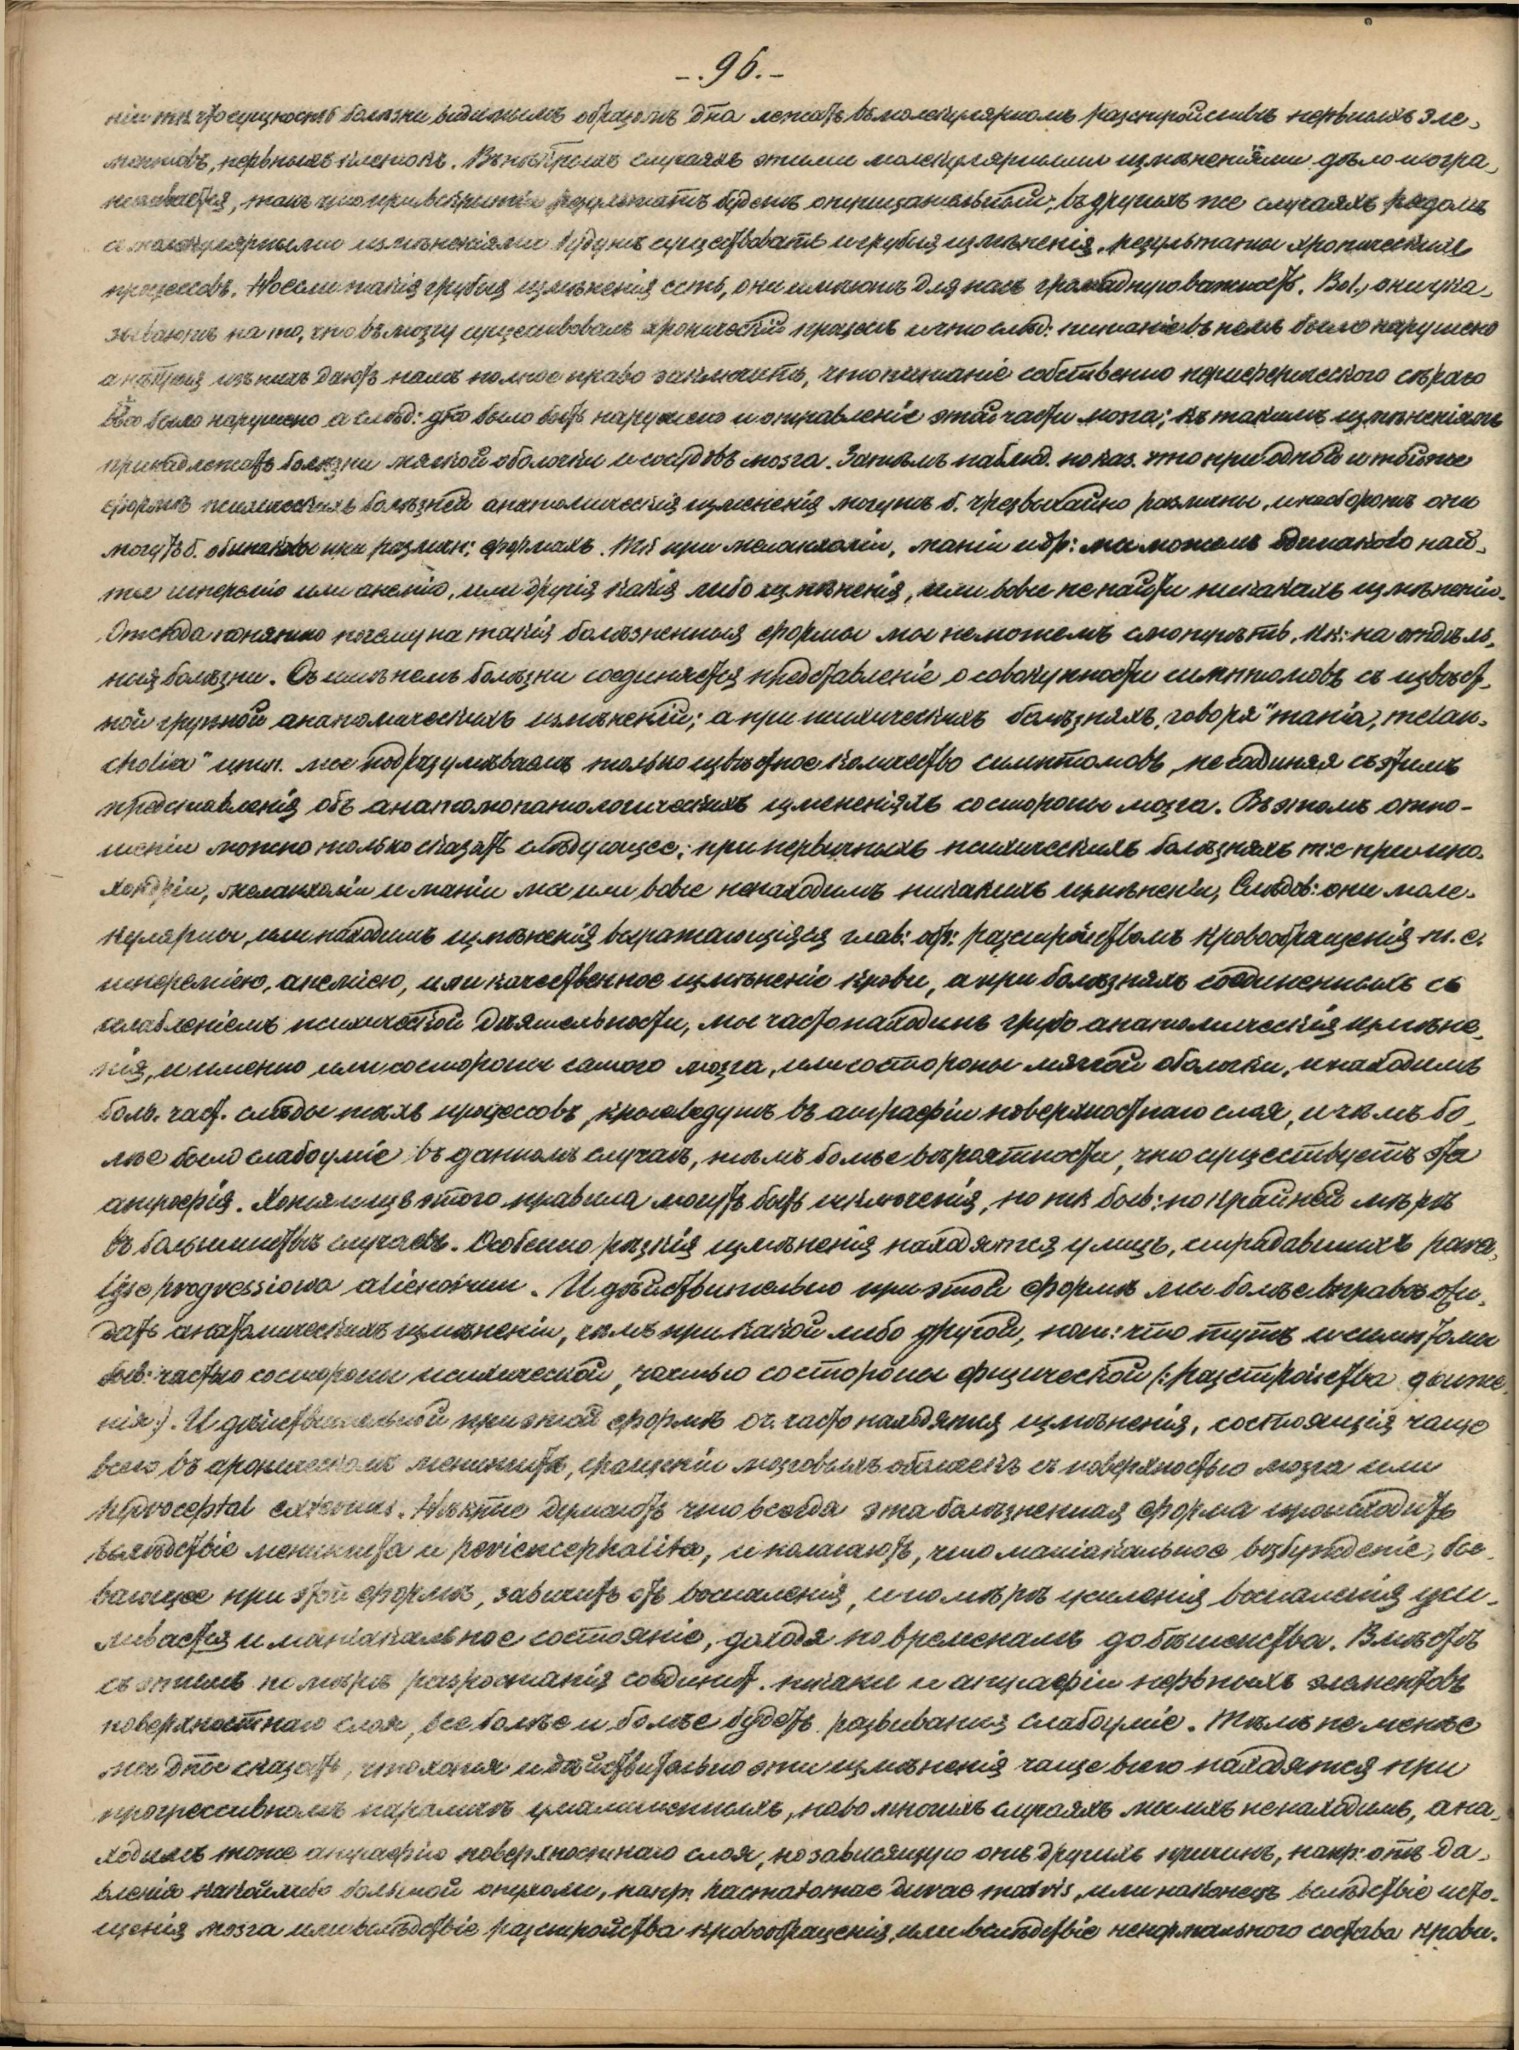 -. 96. -
ніи т.к. что сущность болѣзни видимымъ образомъ дна лежать въ молекулярномъ разстройствѣ нервныхъ эле-
ментовъ, нервныхъ клетокъ. Въ нѣкторыхъ случаяхъ этими молекулярными измѣненіями дѣло и огра-
ничивается, такъ что при вскрытіи результатъ будетъ отрицательный; въ другихъ же случаяхъ рядомъ
съ молекулярными измѣненіями будутъ существовать и грубыя измѣненія, результаты хроническихъ
процессовъ. Но если такія грубыя измѣненія есть, они имѣютъ для насъ громадную важность. Во 1., они ука-
зываютъ на то, что въ мозгу существовалъ хроническій процесъ и что слѣд: питаніе въ немъ было нарушено
а нѣкрыя изъ нихъ даютъ намъ полное право заключить, что питаніе собственно периферическаго сѣраго
в-ва было нарушено а слѣд: дно было быть нарушено и отправленіе этой части мозга; къ такимъ измѣненіямъ
принадлежатъ болѣзни мягкой оболочки и сосудовъ мозга. Затѣмъ наблюд. показ. что при одной и той же
формѣ психическихъ болѣзней анатомическія измененія могутъ б. чрезвычайно различны, и наоборотъ они
могутъ б. одинаковы при различн: формахъ. Т.к. при меланхоліи, маніи и др: мы можемъ одинаково най-
ти гиперемію или анемію, или другія какія либо измѣненія, или вовсе не найти никакихъ измѣненій.
Отсюда понятно почему на такія болѣзненныя формы мы не можемъ смотрѣть, кк: на отдѣль-
ныя болѣзни. Съ именемъ болѣзни соединяется представленіе о совокупности симптомовъ съ извѣст-
ной группой анатомическихъ измѣненій; а при психическихъ болѣзняхъ, говоря "mania, melan-
cholia" и т.п. мы подразумѣваемъ только извѣстное количество симптомовъ, не соединяя съ этимъ
представленія объ анатомопатологическихъ измененіяхъ со стороны мозга. Въ этомъ отно-
шеніи можно только сказать слѣдующее: при первичныхъ психическихъ болѣзняхъ т:е при ипо-
хондріи, меланхоліи и маніи мы или вовсе не находимъ никакихъ измѣненій, слѣдов: они моле-
кулярны, или находимъ измѣненія выражающіяся глав: обр: разстройствомъ кровообращенія т. е.
гипереміею, анеміею, или качественное измѣненіе крови, а при болѣзняхъ соединенныхъ съ
ослабленіемъ психической дѣятельности, мы часто находимъ грубо анатомическія измѣне-
нія, и именно или со стороны самого мозга, или со стороны мягкой оболочки, и находимъ
больш. част. слѣды тѣхъ процессовъ, кои ведутъ въ атрофіи поверхностнаго слоя, и чѣмъ бо-
лѣе было слабоуміе въ данномъ случаѣ, тѣмъ болѣе вѣроятности, что существуетъ эта
атрофія. Хотя и изъ этого правила могутъ быть исключенія, но так быв: по крайней мѣрѣ
въ большинствѣ случаевъ. Особенно рѣзкія измѣненія находятся у лицъ, страдавшихъ para-
lyse progressiowa alienorum. И дѣйствительно при этой формѣ мы болѣе вправѣ ожи-
дать анатомическихъ измѣненій, чѣмъ при какой либо другой, пот: что тутъ и симптомы
быв: частью со стороны психической, частью со стороны физической (: разстройства движе-
нія:). И дѣйствительной при этой формѣ оч. часто находятся измѣненія, состоящія чаще
всего въ хроническомъ менингитѣ, сращеніи мозговыхъ оболочекъ съ поверхностью мозга или
hydroceptal externus. Нѣкрые думаютъ что всегда эта болѣзненная форма происходитъ
вслѣдствіе менингита и periencephalita, и полагаютъ, что маніакальное возбужденіе, бы-
вающее при этой формѣ, зависитъ отъ воспаленія, и по мѣрѣ усиленія воспаленія уси-
ливается и маніакальное состояніе, доходя по временамъ до бѣшенства. Вмѣстѣ
съ этимъ по мѣрѣ разростанія соединит. ткани и атрофіи нервныхъ элементовъ
поверхностнаго слоя, все болѣе и болѣе будетъ развиваться слабоуміе. Тѣмъ не менѣе
мы дны сказать, что хотя и дѣйствительно эти измѣненія чаще всего находятся при
прогрессивномъ параличѣ умалишенныхъ, но во многихъ случаяхъ мы ихъ не находимъ, а на-
ходимъ тоже атрофію поверхностнаго слоя, но зависящую отъ другихъ причинъ, напр: отъ да-
вленія какой либо большой опухоли, напр. haematomae durae matris, или наконецъ вслѣдствіе исто-
щенія мозга или вслѣдствіе разстройства кровообращенія, или вслѣдствіе ненормального состава крови.